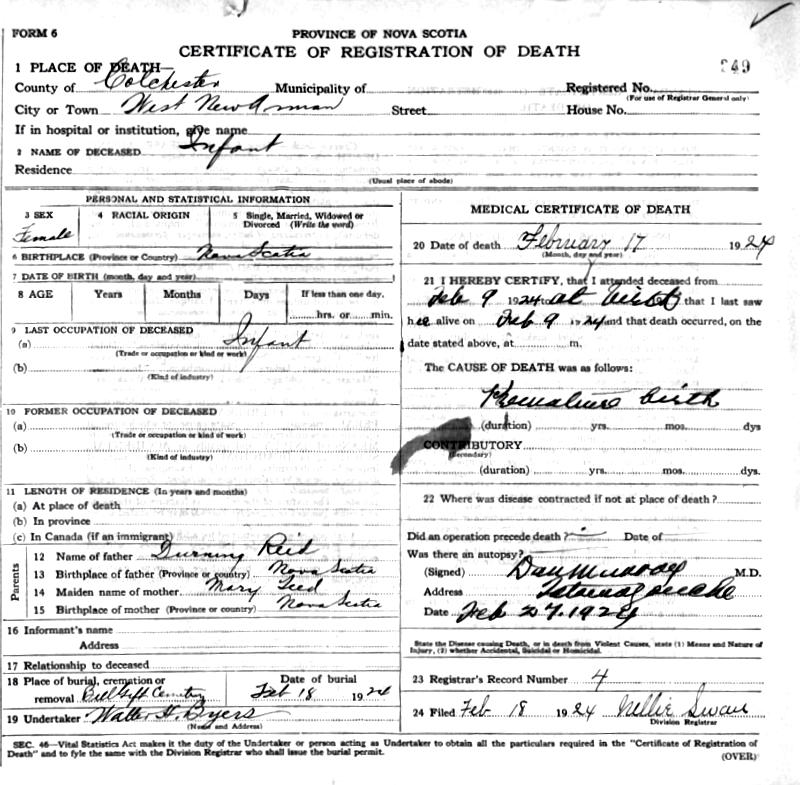 FORM 6
PROVINCE OF NOVA SCOTIA
CERTIFICATE OF REGISTRATION OF DEATH
249
1 PLACE OF DEATH—
County of Colchester Municipality of Registered No.
(For use of Registrar General only)
City or Town West New Annan Street House No.
If in hospital or institution, give name
2 NAME OF DECEASED Infant
Residence
(Usual place of abode)
PERSONAL AND STATISTICAL INFORMATION
3 SEX 4 RACIAL ORIGIN 5 Single, Married, Widowed or Divorced (Write the word)
Female
6 BIRTHPLACE (Province or Country) Nova Scotia
7 DATE OF BIRTH (month, day and year)
8 AGE Years Months Days If less than one day,
hrs. or min.
9 LAST OCCUPATION OF DECEASED
(a) Infant
(Trade or occupation or kind or work)
(b)
(Kind of industry)
10 FORMER OCCUPATION OF DECEASED
(a)
(Trade or occupation or kind of work)
(b)
(Kind of industry)
11 LENGTH OF RESIDENCE (In years and months)
(a) At place of death
(b) In province
(c) In Canada (if an immigrant)
Parents
12 Name of father Durning Reid
13 Birthplace of father (Province or country) Nova Scotia
14 Maiden name of mother Mary
15 Birthplace of mother (Province or country) Nova Scotia
16 Informant's name
Address
17 Relationship to deceased
18 Place of burial, cremation or removal Cemetery Date of burial Feb 18 1924
19 Undertaker Walter H. Byers
(Name and Address)
MEDICAL CERTIFICATE OF DEATH
20 Date of death February 17 1924
(Month, day and year)
21 I HEREBY CERTIFY, that I attended deceased from
Feb 9 1924 at birth that I last saw
her alive on Feb 9 1924 and that death occurred, on the
date stated above, at m.
The CAUSE OF DEATH was as follows:
Premature birth
(duration) yrs. mos. dys
CONTRIBUTORY
(Secondary)
(duration) yrs. mos. dys.
22 Where was disease contracted if not at place of death?
Did an operation precede death? Date of
Was there an autopsy?
(Signed) Dan Murray M.D.
Address Tatamagouche
Date Feb 27. 1924
State the Disease causing Death, or in death from Violent Causes, state (1) Means and Nature of
Injury, (2) whether Accidental, Suicidal or Homicidal.
23 Registrar's Record Number 4
24 Filed Feb 18 1924 Nellie Swan
Division Registrar
SEC. 46—Vital Statistics Act makes it the duty of the Undertaker or person acting as Undertaker to obtain all the particulars required in the "Certificate of Registration of
Death" and to fyle the same with the Division Registrar who shall issue the burial permit.
(OVER)